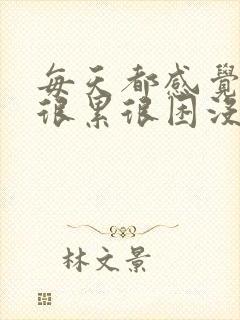 每天都感覺
很累很困沒
林文景